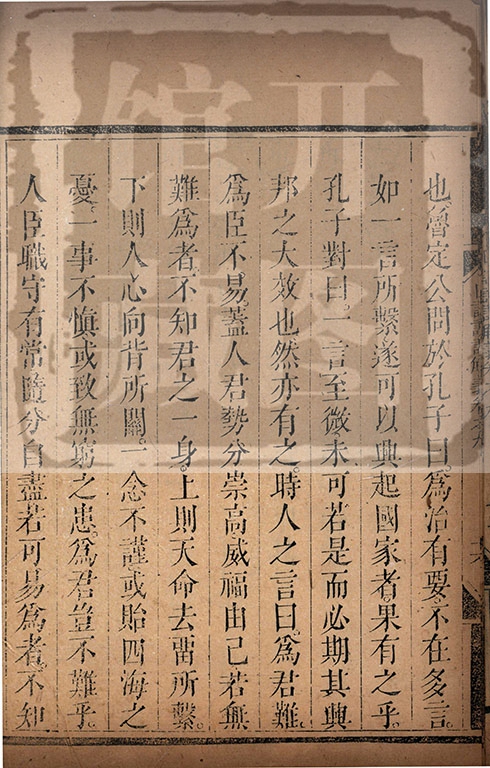 也魯定公問於孔子曰爲治有要不在多言
如一言所繫遂可以興起國家者果有之乎
孔子對曰一言至微未可若是而必期其興
邦之大效也然亦有之時人之言曰爲君難
爲臣不易蓋人君勢分崇高威福由己若無
難爲者不知君之一身上則天命去畱所繫
下則人心向背所關一念不謹或貽四海之
憂一事不慎或致無窮之患爲君豈不難乎
人臣職守有常隨分自盡若可易爲者不知